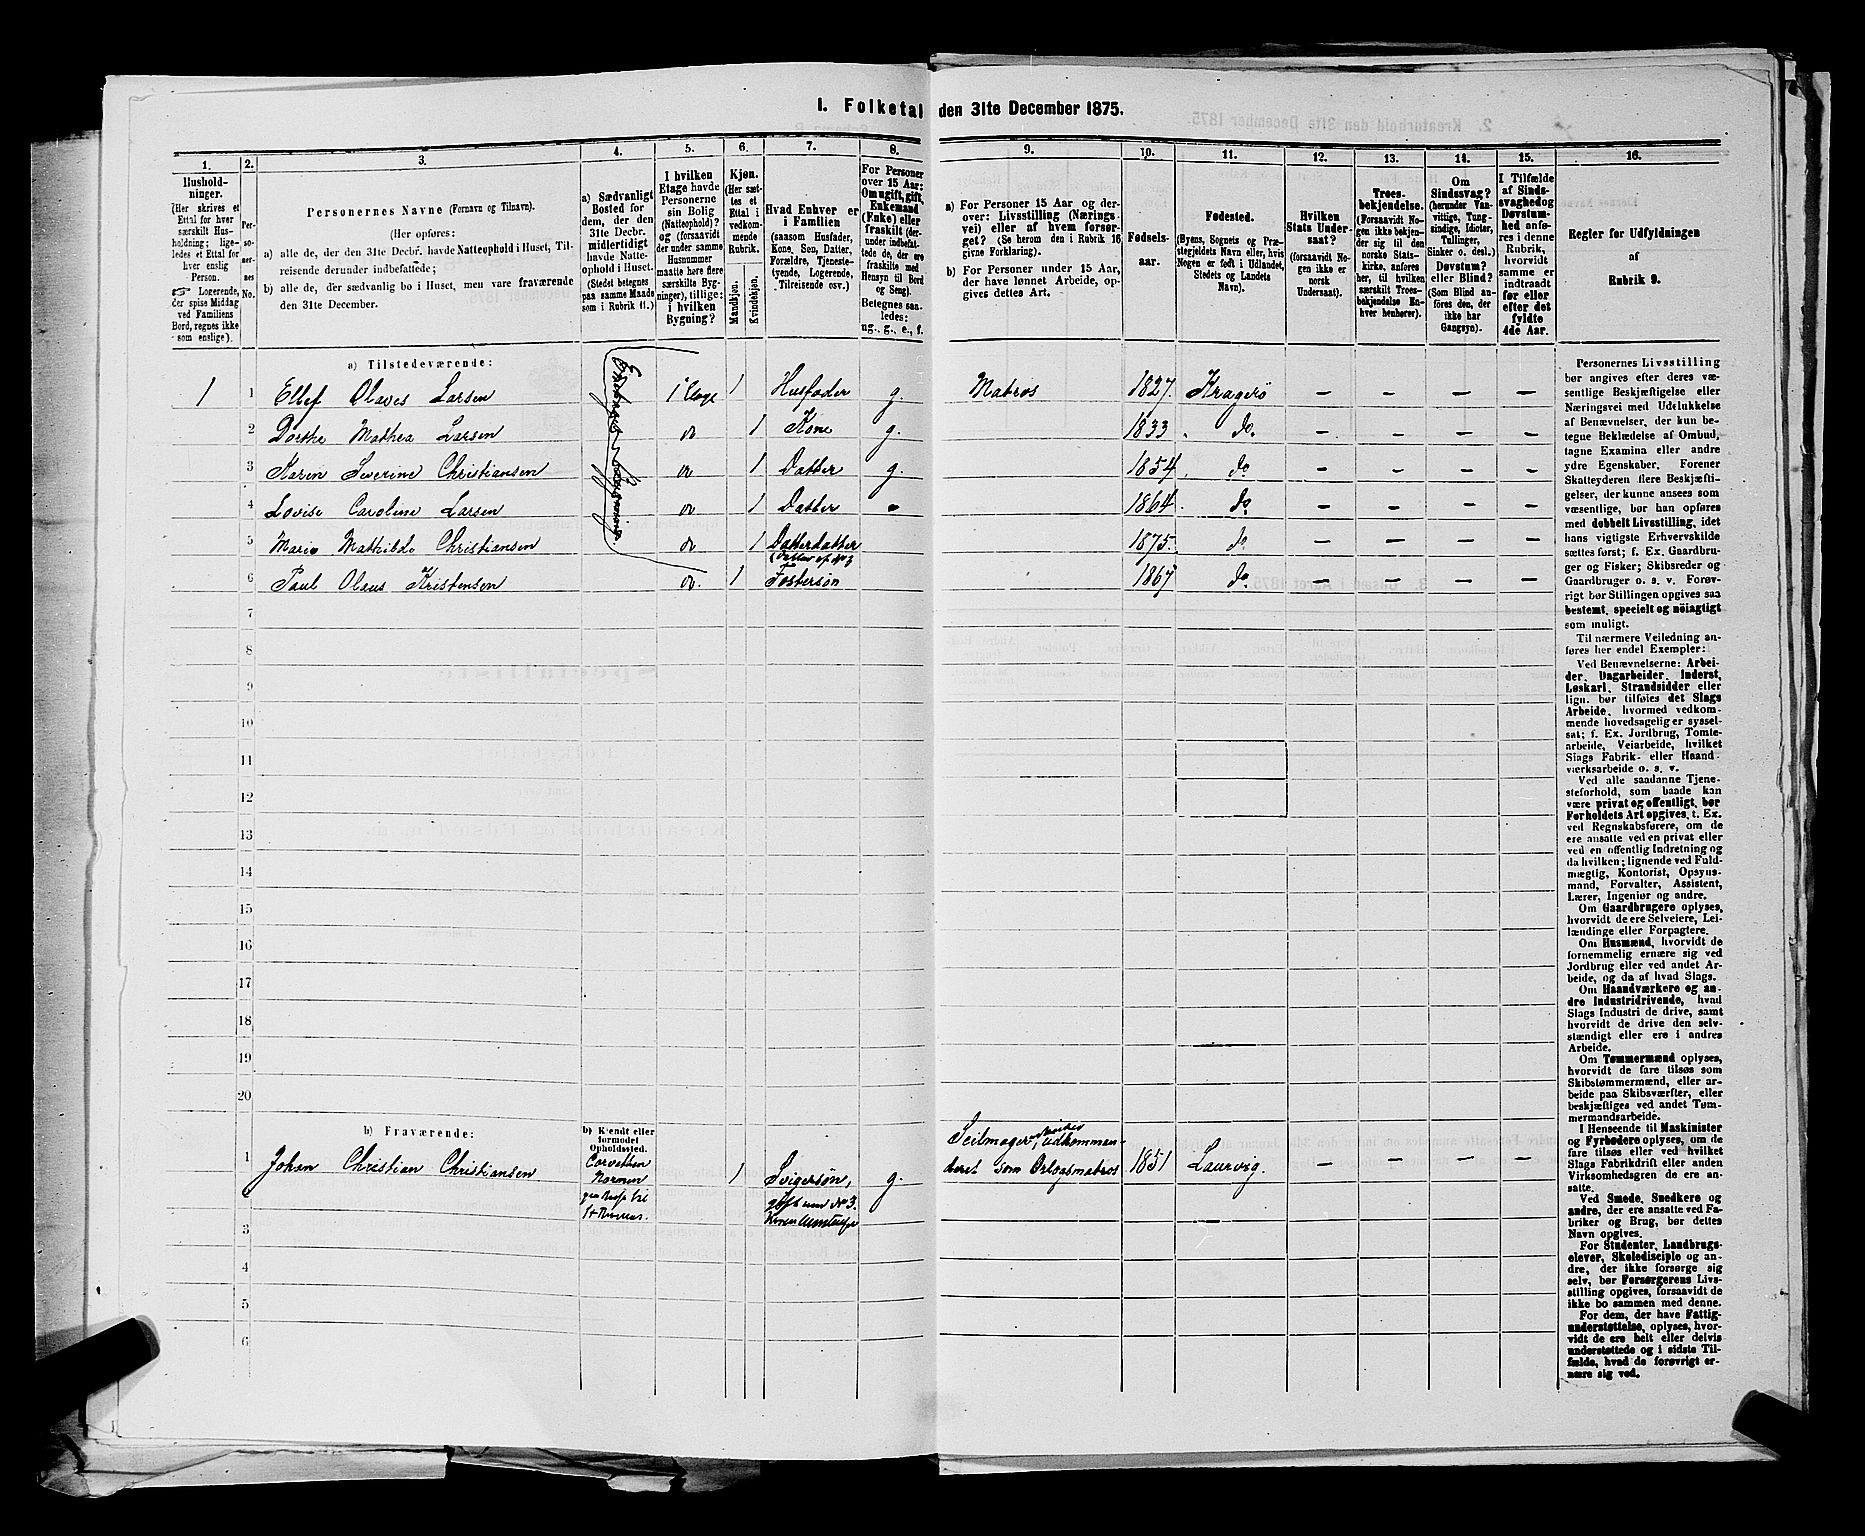 I. Folketal den 31te December 1875.
1. 2. 3. 4. 5. 6. 7. 8. 9. 10. 11. 12. 13. 14. 15. 16.
Hushold-
ninger.
(Her skrives et
Ettal for hver
særskilt Hus-
holdning; lige-
ledes et Ettal for
hver enslig
Person.
☞ Logerende,
der spise Middag
ved Familiens
Bord, regnes ikke
som enslige).
Per-
so-
ner-
nes
No.
Personernes Navne (Fornavn og Tilnavn).
(Her opføres:
a) alle de, der den 31te Decbr. havde Natteophold i Huset, Til-
reisende derunder indbefattede;
b) alle de, der sædvanlig bo i Huset, men vare fraværende
den 31te December.
a) Sædvanligt
Bosted for
dem, der den
31te Decbr.
midlertidigt
havde Natte-
ophold i Huset.
(Stedet betegnes
paa samme Maade
som i Rubrik 11.)
I hvilken
Etage havde
Personerne
sin Bolig
(Natteophold)?
og (forsaavidt
der under samme
Husnummer
maatte høre flere
særskilte Byg-
ninger), tillige:
i hvilken
Bygning?
Kjøn.
(Her sæt-
tes et
Ettal i
vedkom-
mende
Rubrik.
Mandkjøn.
Kvindekjøn.
Hvad Enhver er
i Familien
(saasom Husfader,
Kone, Søn, Datter,
Forældre, Tjeneste-
tyende, Logerende,
Tilreisende osv.)
For Personer
over 15 Aar:
Om ugift, gift,
Enkemand
(Enke) eller
fraskilt (der-
under indbefat-
tede de, der ere
fraskilte med
Hensyn til Bord
og Seng).
Betegnes saa-
ledes:
ug., g., e., f.
a) For Personer 15 Aar og der-
over: Livsstilling (Nærings-
vei) eller af hvem forsør-
get? (Se herom den i Rubrik 16
givne Forklaring).
b) For Personer under 15 Aar,
der have lønnet Arbeide, op-
gives dettes Art.
Fødsels-
aar.
Fødested.
(Byens, Sognets og Præ-
stegjeldets Navn eller, hvis
Nogen er født i Udlandet,
Stedets og Landets
Navn).
Hvilken
Stats Under-
saat?
(forsaavidt No-
gen ikke er
norsk
Undersaat).
Troes-
bekjendelse.
(Forsaavidt No-
gen ikke bekjen-
der sig til den
norske Stats-
kirke, anføres
her, til hvilken
særskilt Troes-
bekjendelse En-
hver henhører).
Om
Sindssvag?
(herunder Van-
vittige, Tung-
sindige, Idioter,
Tullinger,
Sinker o. desl.)
Døvstum?
eller Blind?
(Som Blind an-
føres den, der
ikke har
Gangsyn).
I Tilfælde
af Sinds-
svaghed og
Døvstum-
hed anfø-
res i denne
Rubrik,
hvorvidt
samme er
indtraadt
før eller
efter det
fyldte
4de Aar.
Regler for Udfyldningen
af
Rubrik 9.
a) Tilstedeværende:
1 1 Ellef Olaves Larsen 1 Etage 1 Husfader g. Matros 1827. Kragerø – – – –
2 Dorthe Mathea Larsen do 1 Kone g. 1833. do. – – – –
3 Karen Severine Christiansen do 1 Datter g. 1854. do – – – –
4 Lovise Caroline Larsen do 1 Datter 1864. do. – – – –
5 Marie Mathilde Christiansen do 1 Datterdatter 1875. do. – – – –
(Datter af No 3
6 Paul Olaus Kristensen do. 1 Fostersøn 1867 do. – – – –
7
8
9
10
11
12
13
14
15
16
17
18
19
20
b) Fraværende:
b) Kjendt eller
formodet
Opholdssted.
1 Johan Christian Christiansen Corvetten 1 Svigersøn, g. Seilmager, udkomman-
deret som Orlogsmatros 1851 Laurvig. – – – –
Nornen
gift med No 3.
3
4
5
6
Personernes Livsstilling
bør angives efter deres væ-
sentlige Beskjæftigelse eller
Næringsvei med Udelukkelse
af Benævnelser, der kun be-
tegne Beklædelse af Ombud,
tagne Examina eller andre
ydre Egenskaber. Forener
Skatteyderen flere Beskjæfti-
gelser, der kunne ansees som
væsentlige, bør han opføres
med dobbelt Livsstilling, idet
hans vigtigste Erhvervskilde
sættes først; f. Ex. Gaardbru-
ger og Fisker; Skibsreder og
Gaardbruger o. s. v. Forøv-
rigt bør Stillingen opgives saa
bestemt, specielt og nöiagtigt
som muligt.
Til nærmere Veiledning an-
føres her endel Exempler:
Ved Benævnelserne: Arbei-
der, Dagarbeider, Inderst,
Løskarl, Strandsidder eller
lign. bør tilføies det Slags
Arbeide, hvormed vedkom-
mende hovedsagelig er syssel-
sat; f. Ex. Jordbrug, Tomte-
arbeide, Veiarbeide, hvilket
Slags Fabrik- eller Haand-
værksarbeide o. s. v.
Ved alle saadanne Tjene-
steforhold, som baade kan
være privat og offentligt, bør
Forholdets Art opgives, t. Ex.
ved Regnskabsførere, om de
ere ansatte ved en privat eller
ved en offentlig Indretning og
da hvilken; lignende ved Fuld-
mægtig, Kontorist, Opsyns-
mand, Forvalter, Assistent,
Lærer, Ingeniør og andre.
Om Gaardbrugere oplyses,
hvorvidt de ere Selveiere, Lei-
lændinge eller Forpagtere.
Om Husmænd, hvorvidt de
fornemmelig ernære sig ved
Jordbrug eller ved andet Ar-
beide, og da af hvad Slags.
Om Haandværkere og an-
dre Industridrivende, hvad
Slags Industri de drive, samt
hvorvidt de drive den selv-
stændigt eller ere i andres
Arbeide.
Om Tømmermænd oplyses,
hvorvidt de fare tilsøs som
Skibstømmermænd, eller ar-
beide paa Skibsværfter, eller
beskjæftiges ved andet Tøm-
mermandsarbeide.
I Henseende til Maskinister
og Fyrbødere oplyses, om de
fare tilsøs eller ved hvilket
Slags Fabrikdrift eller anden
Virksomhedsgren de ere an-
satte.
Ved Smede, Snedkere og
andre, der ere ansatte ved Fa-
briker og Brug, bør dettes
Navn opgives.
For Studenter, Landbrugs-
elever, Skoledisciple og an-
dre, der ikke forsørge sig
selv, bør Forsørgerens Livs-
stilling opgives, forsaavidt de
ikke bo sammen med denne.
For dem, der have Fattig-
understøttelse, oplyses, hvor-
vidt de ere helt eller delvis
understøttede og i sidste Til-
fælde, hvad de forøvrigt er-
nære sig ved.